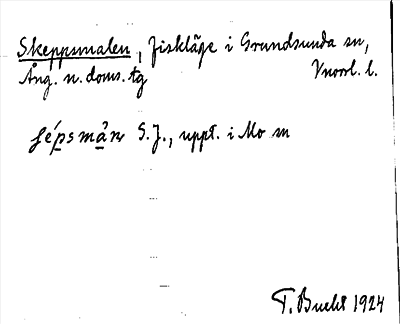 Skeppsmalen, Fiskläge i Grundsunda sn,
Ång. n. doms. tg Vnorrl. l.
S.J., uppt. i Mo sn
T. Bucht 1924